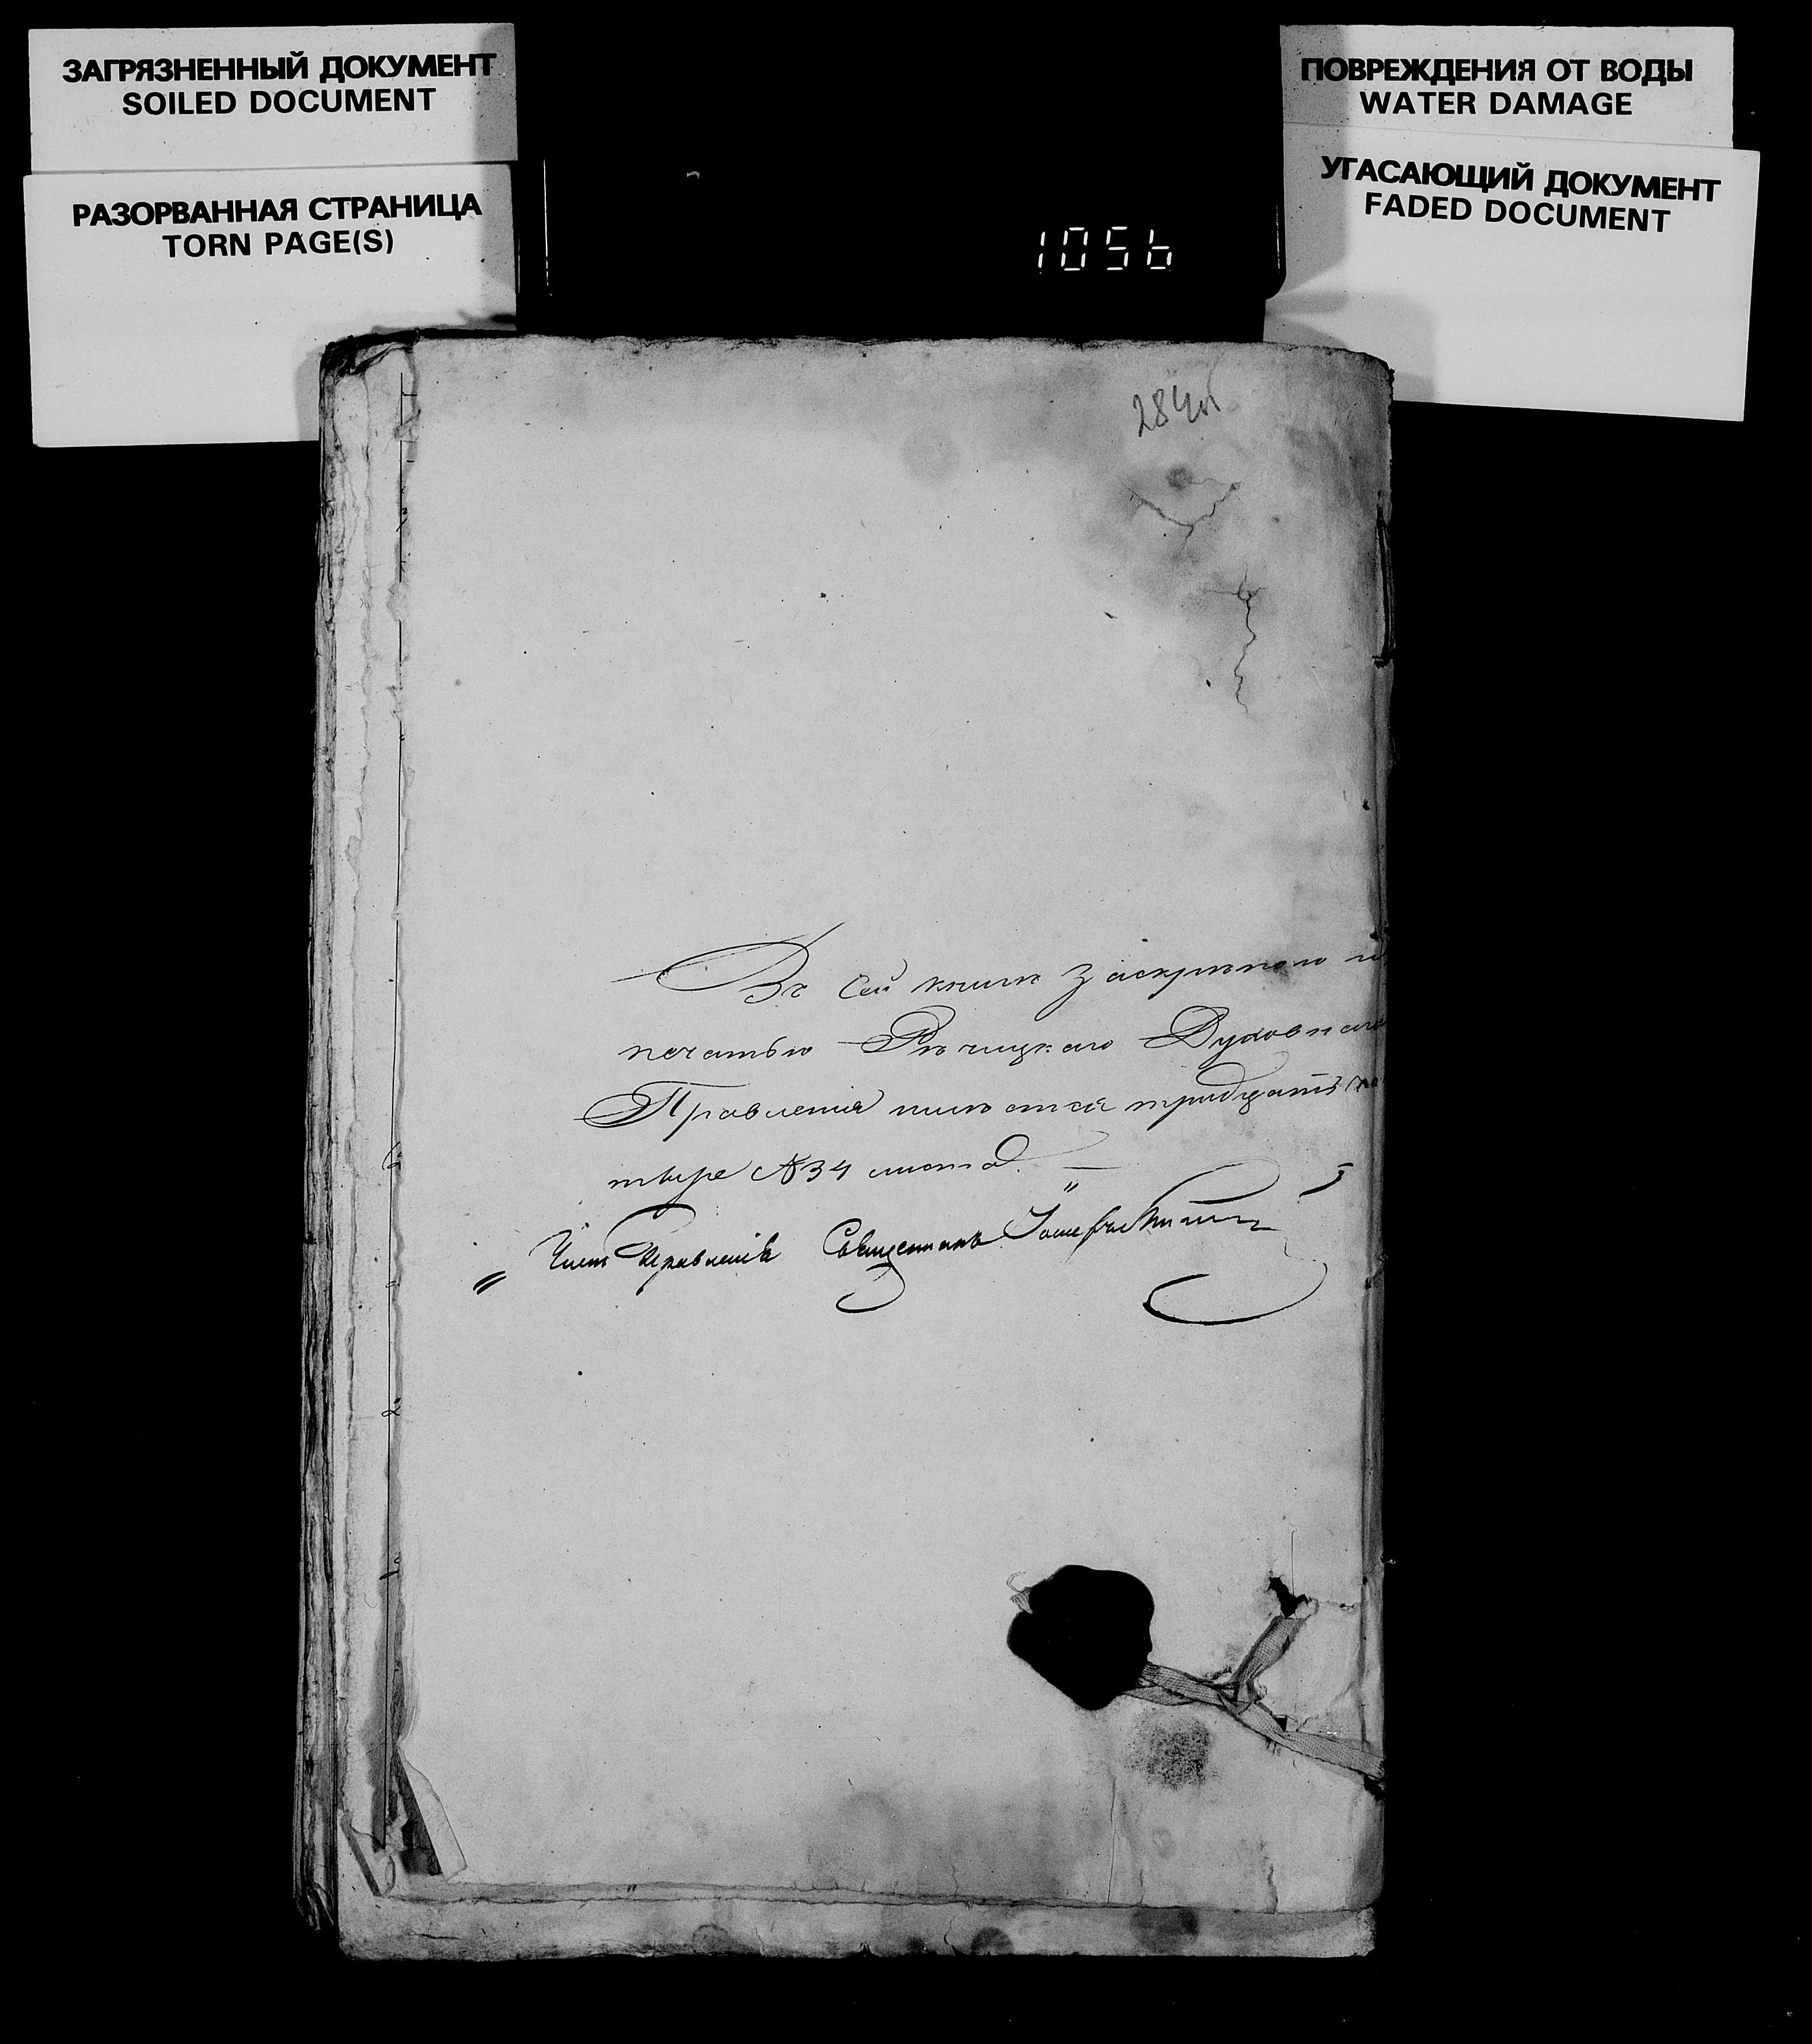 ЗАГРЯЗНЕННЫЙ ДОКУМЕНТ
SOILED DOCUMENT
РАЗОРВАННАЯ СТРАНИЦА
TORN PAGE(S)
ПОВРЕЖДЕНИЯ ОТ ВОДЫ
WATER DAMAGE
УГАСАЮЩИЙ ДОКУМЕНТ
FADED DOCUMENT
1056
284
Въ сей книгѣ за скрѣпою и
печатью Рѣчицкаго Духовнаго
Правленія имѣется тридцать че
тыре №34 листа.
Членъ Правленія Священникъ